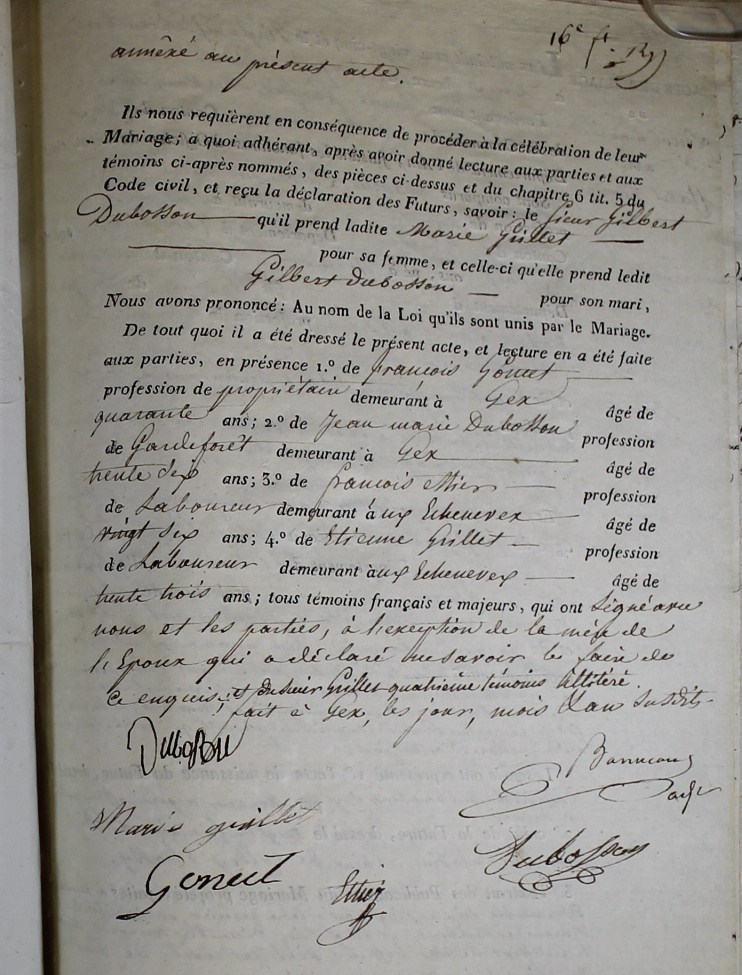 16e ft
annéxé au présent acte.
Ils nous requièrent en conséquence de procéder à la célébration de leur
Mariage; à quoi adhérant, après avoir donné lecture aux parties et aux
témoins ci-après nommés, des pièces ci-dessus et du chapitre 6 tit. 5 du
Code civil, et reçu la déclaration des Futurs, savoir: le Sieur Gilbert
Dubosson qu'il prend ladite Marie Grillet
pour sa femme, et celle-ci qu'elle prend ledit
Gilbert Dubosson pour son mari,
Nous avons prononcé: Au nom de la Loi qu'ils sont unis par le Mariage.
De tout quoi il a été dressé le présent acte, et lecture en a été faite
aux parties, en présence 1.º de françois Gonet
profession de propriétair demeurant à Gex âgé de
quarante ans; 2.º de Jean marie Dubosson profession
de Gardeforêt demeurant à Gex âgé de
trente six ans; 3.º de francois Ettier profession
de Laboureur demeurant à ux Echenevex âgé de
vingt six ans; 4.º de Etienne Grillet profession
de Laboureur demeurant àux Echenevex âgé de
trente trois ans; tous témoins français et majeurs, qui ont Signé avec
nous et les parties, à l'exception de la mère de
l'Epoux qui a déclaré ne savoir le faire de
ce enquise, et du sieur Grillet quatrième témoins illitéré.
fait à Gex, les jour, mois & an susdits
Dubosson
Marie grillet
Gonet Ettier Dubosson